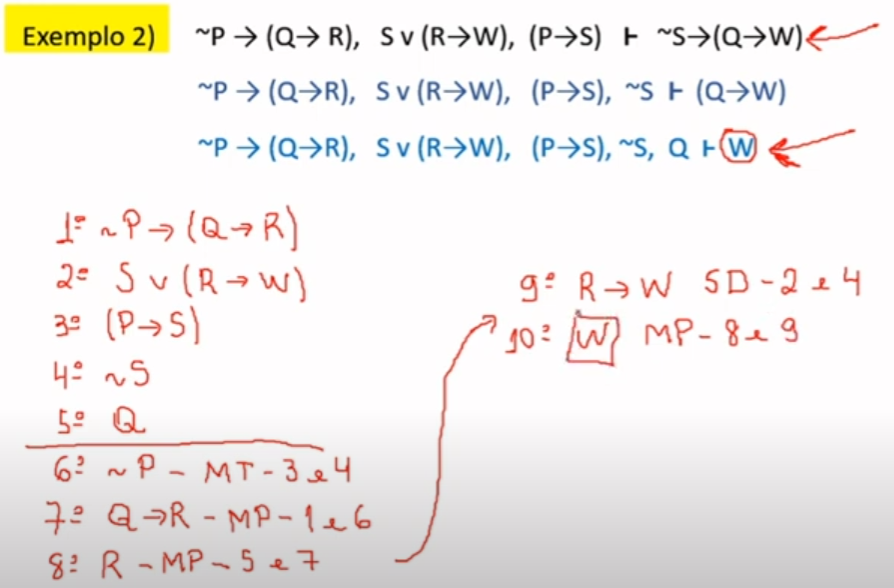 Exemplo 2) ~P → (Q→ R), S v (R→W), (P→S) ⊢ ~S→(Q→W)
~P → (Q→R), S v (R→W), (P→S), ~S ⊢ (Q→W)
~P → (Q→R), S v (R→W), (P→S), ~S, Q ⊢ W
1º ~P → (Q → R)
2º S v (R → W)
3º (P→S)
4º ~S
5º Q
6º ~P - MT - 3 e 4
7º Q→R - MP - 1 e 6
8º R - MP - 5 e 7
9º R → W SD - 2 e 4
10º W MP - 8 e 9